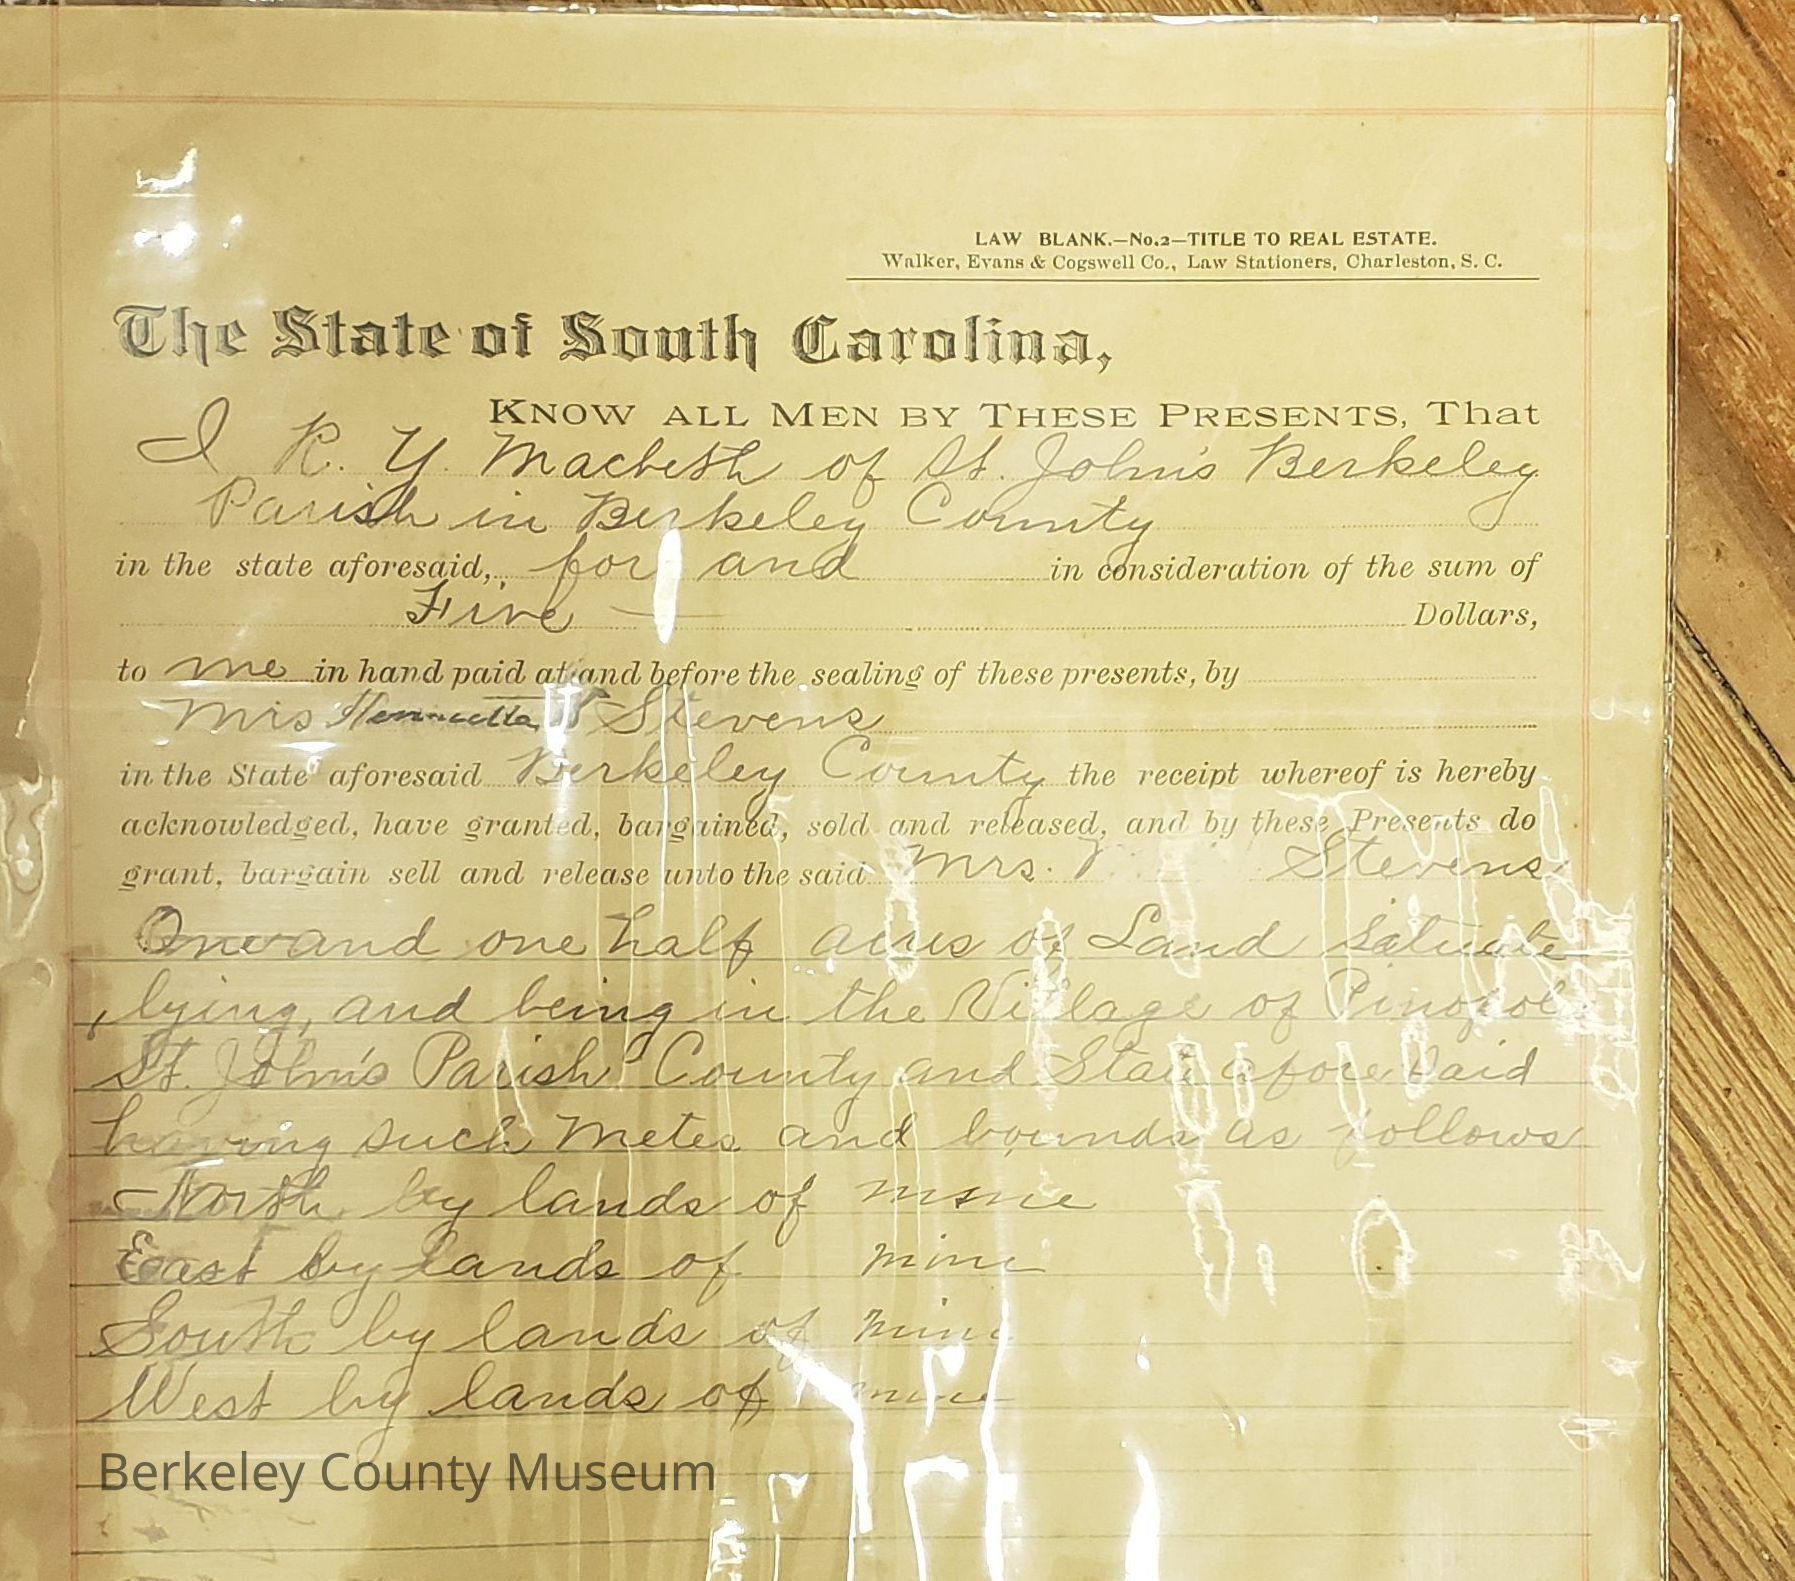 LAW BLANK.—No.2—TITLE TO REAL ESTATE.
Walker, Evans & Cogswell Co., Law Stationers, Charleston, S. C.
The State of South Carolina,
KNOW ALL MEN BY THESE PRESENTS, That
I R. Y. Macbeth of St. John's Berkeley
Parish in Berkeley County
in the state aforesaid, for and in consideration of the sum of
Five Dollars,
to me in hand paid at and before the sealing of these presents, by
Mrs Henrietta Stevens
in the State aforesaid Berkeley County the receipt whereof is hereby
acknowledged, have granted, bargained, sold and released, and by these Presents do
grant, bargain sell and release unto the said Mrs. Stevens
One and one half acres of Land situate
, lying, and being in the Village of
St. John's Parish County and State afore said
having such metes and bounds as follows
North by lands of mine
East by lands of mine
South by lands of mine
West by lands of mine
Berkeley County Museum